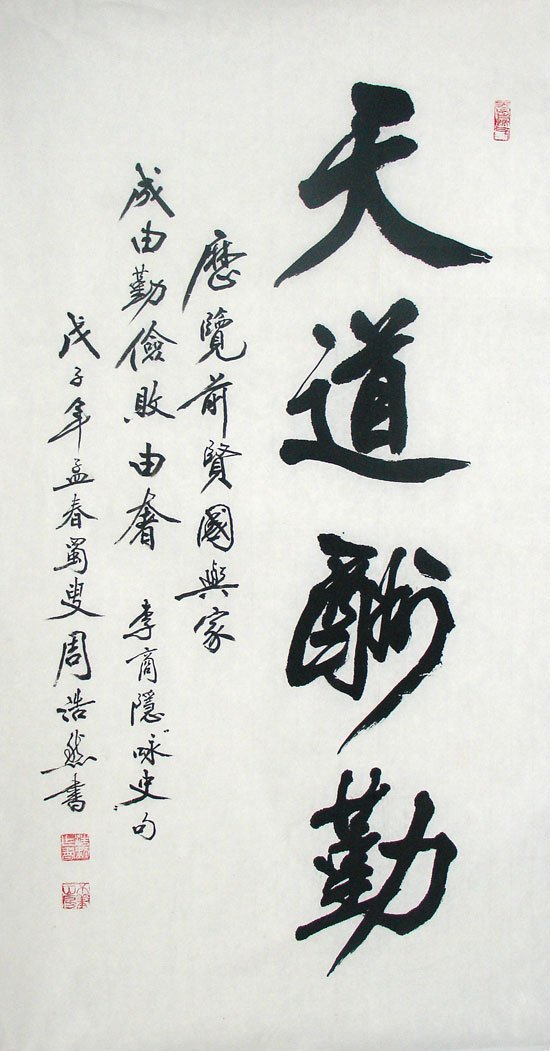 天道酬勤
歷覽前賢國與家
成由勤儉敗由奢 李商隱咏史句
戊子年孟春蜀叟周浩然書